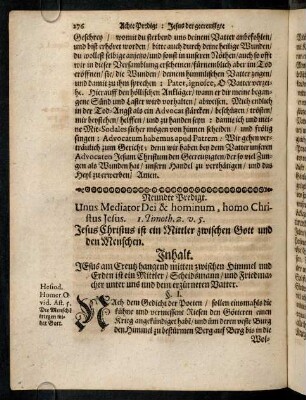 276 Achte Predigt: Jesus der gecreutzigte
Geschrey / womit du sterbend uns deinem Vatter anbefohlen /
und bist erhöret worden / bitte auch durch deine heilige Wunden /
du wollest selbige anjetzo / und sonst in unseren Nöthen / auch so offt
wir in dieser Versamblung erscheinen / fürnemblich aber im Tod
eröffnen / sie, die Wunden / deinem himmlischen Vatter zeigen /
und damit zu ihm sprechen: Pater, ignosce, O Vatter verzei-
he. Hierauff den höllischen Ankläger / wann er dir meine began-
gene Sünd und Laster wird vorhalten / abweisen. Mich endlich
in der Tod-Angst als ein Advocat stärcken / beschützen / trösten /
mir beystehen / helffen / und zu handen seyn: damit ich und mei-
ne Mit-Sodales sicher mögen von hinnen scheiden / und frölig
singen: Advocatum habemus apud Patrem: Wir gehn ver-
träulich zum Gericht; denn wir haben bey dem Vatter unseren
Advocaten Jesum Christum den Gecreutzigten / der so viel Zun-
gen als Wunden hat / unsere Handel zu verthätigen / und das
Heyl zu erwerben / Amen.
Neundte Perdigt.
Unus Mediator Dei & hominum, homo Chri-
stus Jesus. 1. Timoth. 2. v. 5.
Jesus Christus ist ein Mittler zwischen Gott und
den Menschen.
Inhalt.
JEsus am Creutz hangend mitten zwischen Himmel und
Erden ist ein Mittler / Scheidsmann / und Friedmau-
cher unter uns und dem erzürneten Vatter.
§. I.
Hesiod.
Homer O-
vid. Aß. 5.
Die Menschē
kriegen wi-
der Gott.
NAch dem Gedicht der Poeten / sollen einsmahls die
kühne und vermessene Riesen den Götteren einen
Krieg angekündiget habē / und üm deren veste Burg
den Himmel zu bestürmen Berg auf Berg bis in die
Wol-